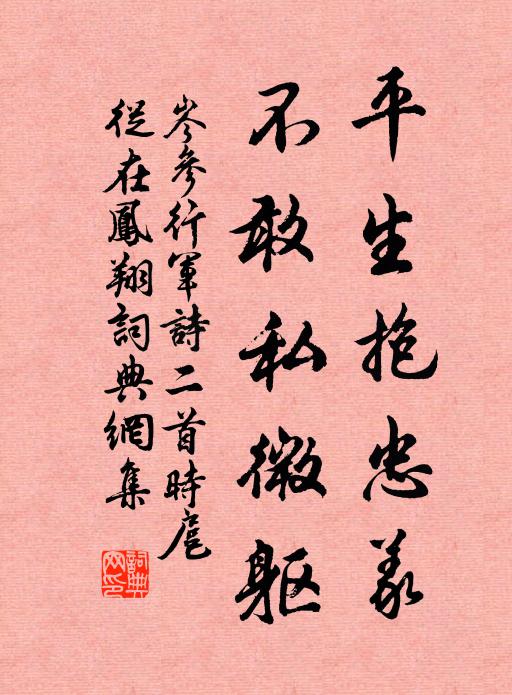 平生抱忠義
不敢私微軀
岑參行軍詩二首時扈
從在鳳翔詞典網集
詞典
网印